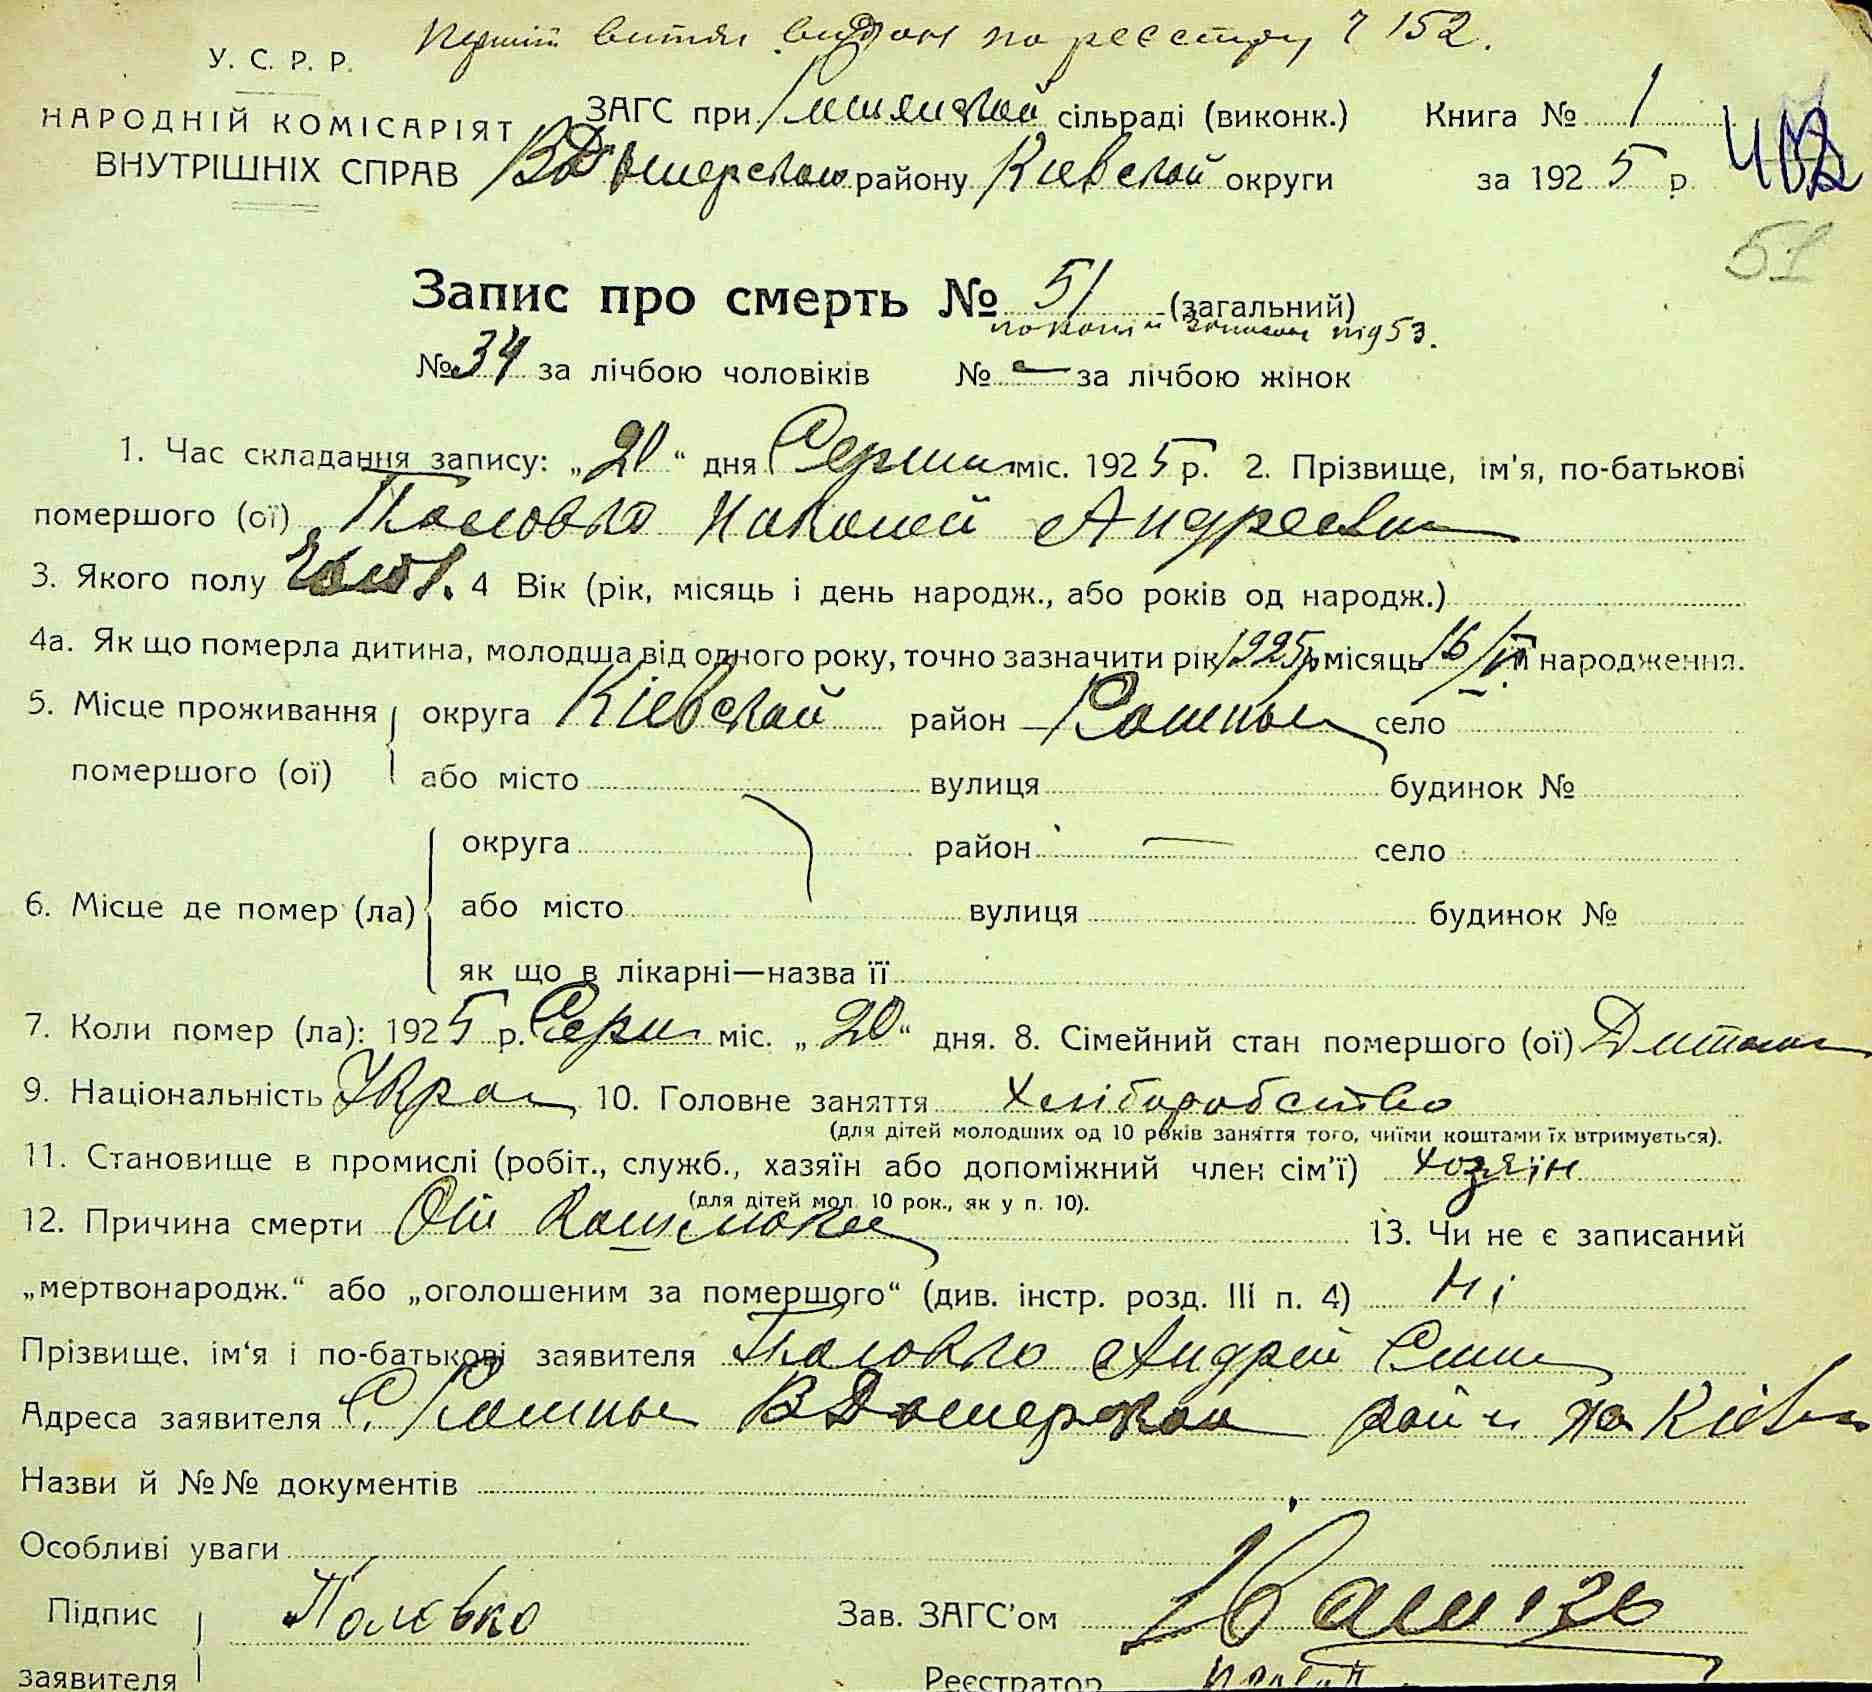 Перший витяг видан по реєстру ч 152.
У. С. Р. Р.
НАРОДНІЙ КОМІСАРІЯТ
ВНУТРІШНІХ СПРАВ
ЗАГС при сільраді (виконк.) Книга № 1
району Кіевской округи за 1925 р.
51
Запис про смерть № 51 (загальний)
під 53.
№ 34 за лічбою чоловіків № — за лічбою жінок
1. Час складання запису: „20“ дня Серпня міс. 1925 р. 2. Прізвище, ім'я, по-батькові
помершого (ої) Половко Николай Андреев
3. Якого полу чолов. 4 Вік (рік, місяць і день народж., або років од народж.)
4а. Як що померла дитина, молодша від одного року, точно зазначити рік 1925 р місяць 16 народження.
5. Місце проживання округа Кіевской район село
помершого (ої) або місто вулиця будинок №
округа район — село
6. Місце де помер (ла) або місто вулиця будинок №
як що в лікарні—назва її
7. Коли помер (ла): 1925 р. Серп міс. „20“ дня. 8. Сімейний стан помершого (ої) Дитина
9. Національність Укра 10. Головне заняття Хліборобство
(для дітей молодших од 10 років заняття того, чиїми коштами їх втримується).
11. Становище в промислі (робіт., служб., хазяїн або допоміжний член сім'ї) хозяїн
(для дітей мол. 10 рок., як у п. 10).
12. Причина смерти От кашлюка 13. Чи не є записаний
„мертвонародж.“ або „оголошеним за помершого“ (див. інстр. розд. III п. 4) Ні
Прізвище, ім'я і по-батькові заявителя Половко Андрей
Адреса заявителя С. рай на Кіев
Назви й №№ документів
Особливі уваги
Підпис Половко Зав. ЗАГС'ом
заявителя Реєстратор